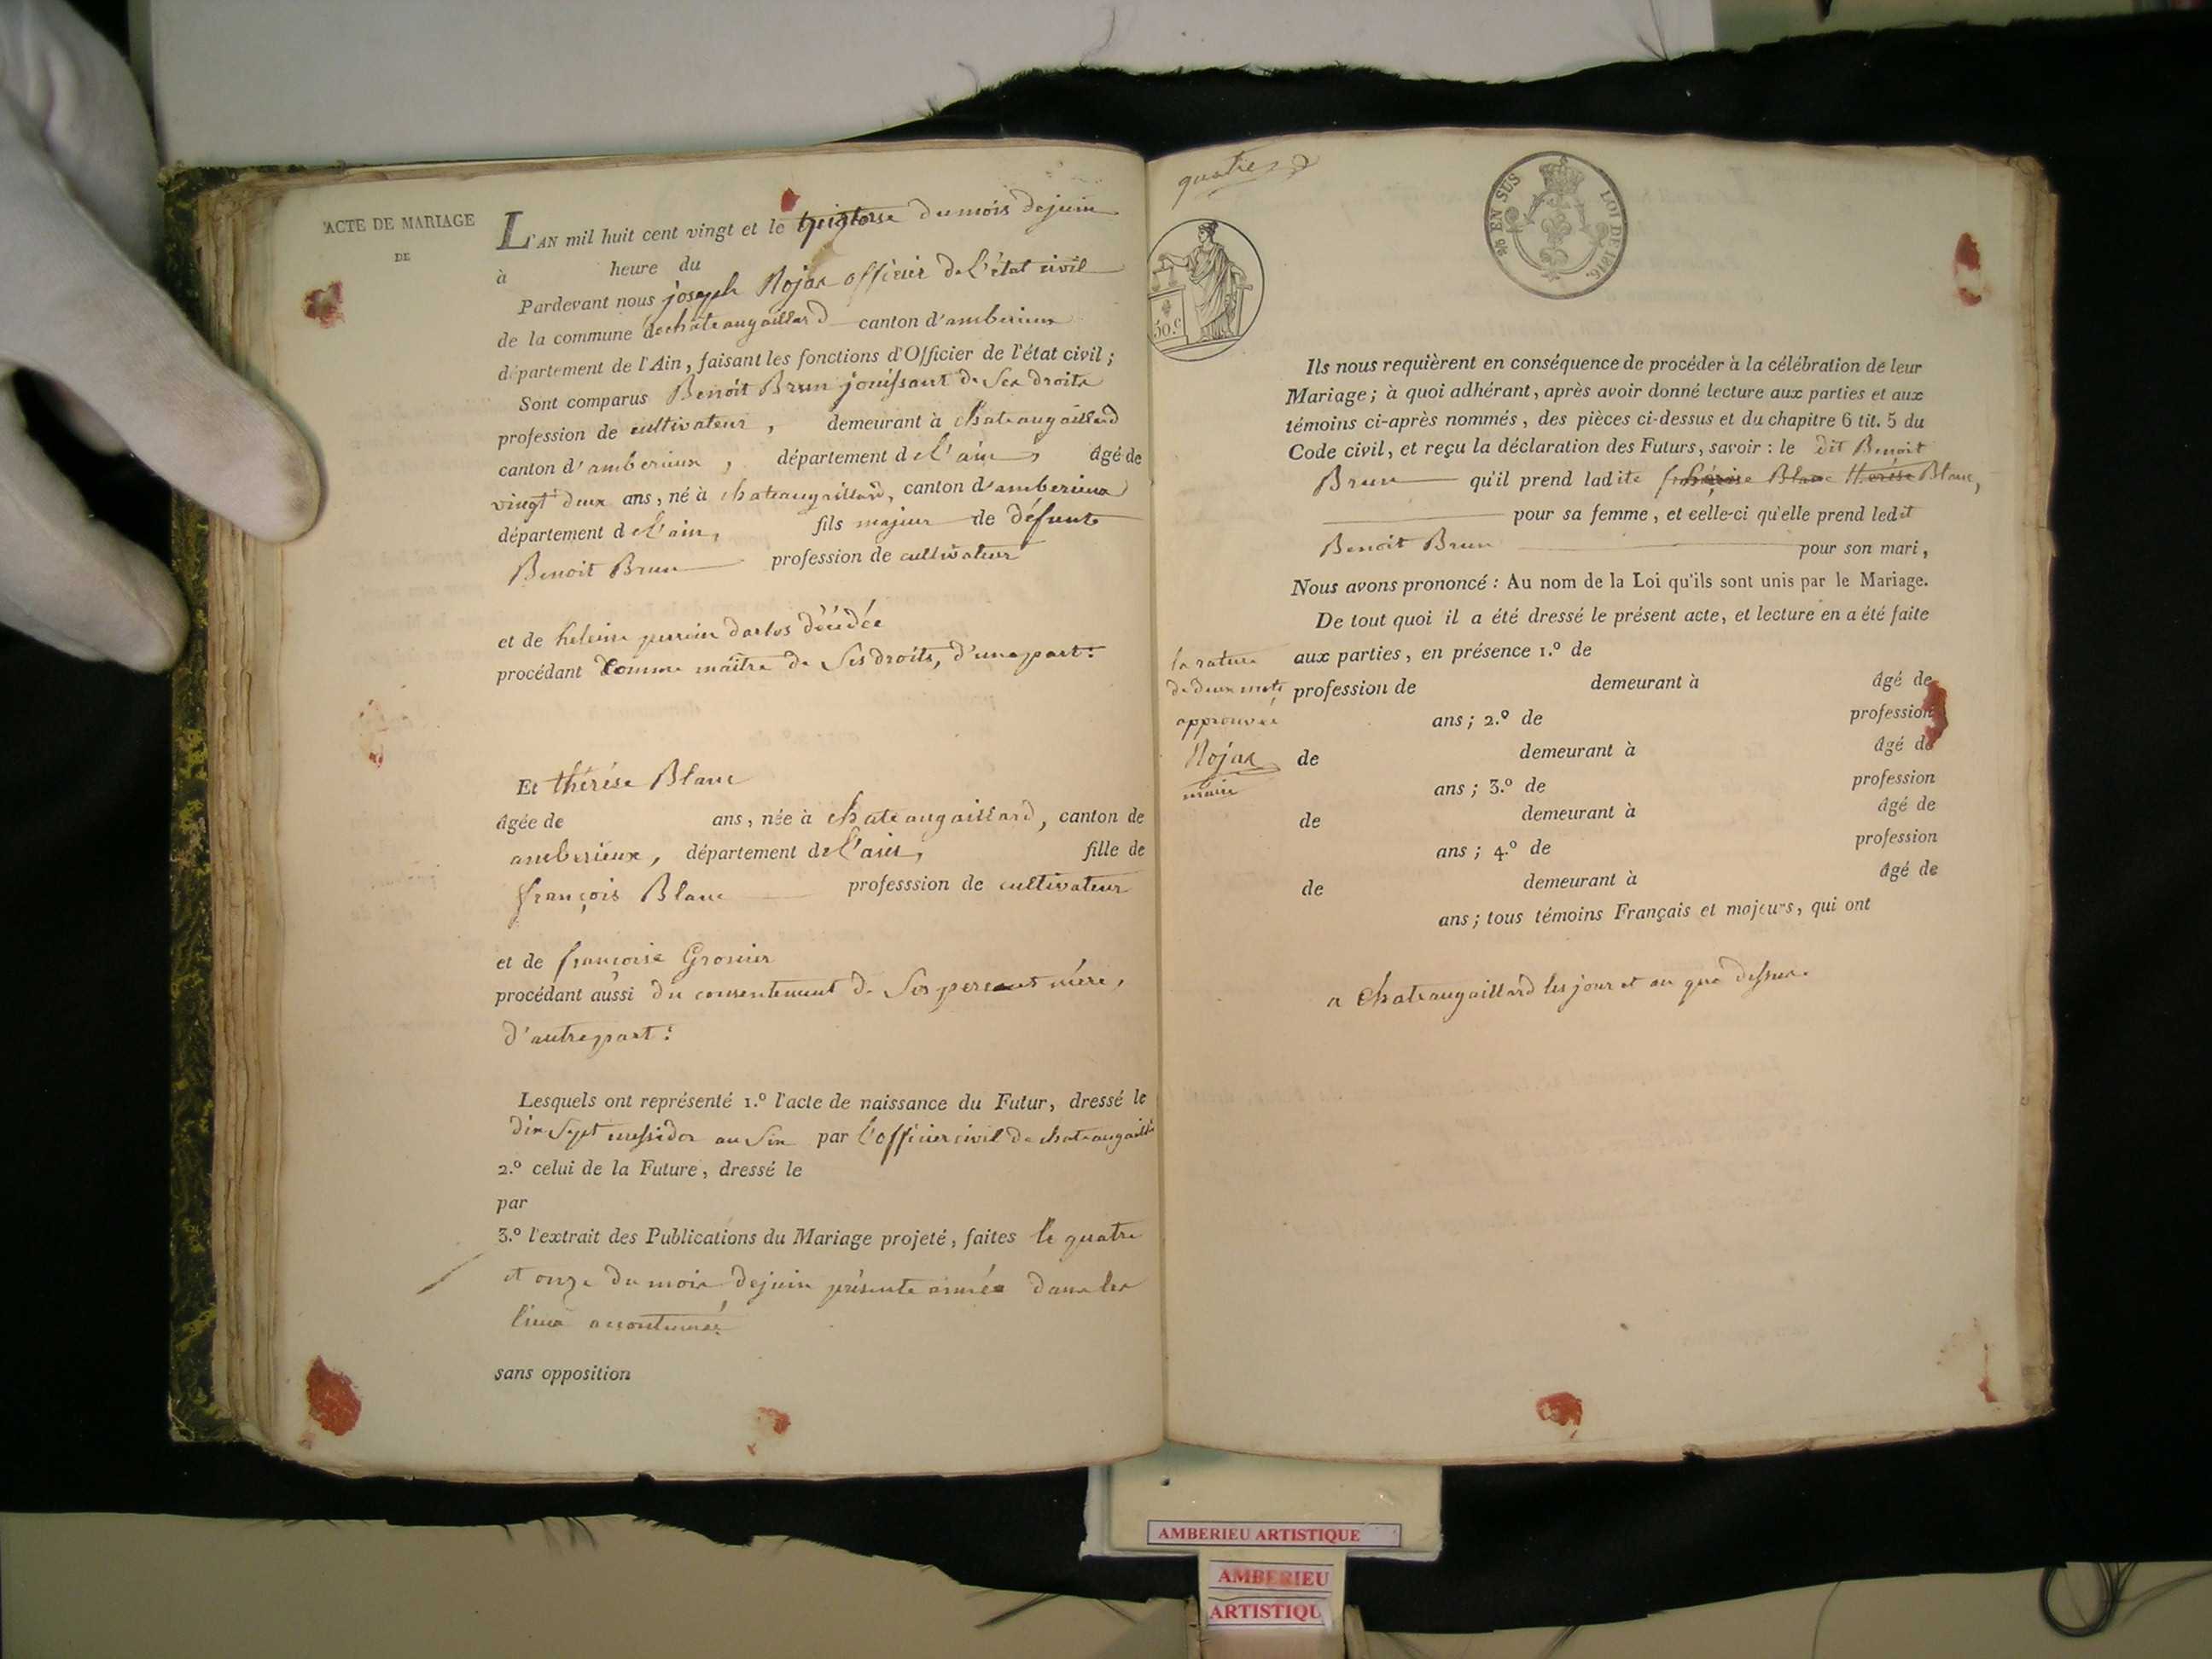 ACTE DE MARIAGE
DE
L'AN mil huit cent vingt et le du mois de juin
à heure du
Pardevant nous joseph Rojax officier de l'état civil
de la commune de chateaugaillard canton d'amberieux
département de l'Ain, faisant les fonctions d'Officier de l'état civil;
Sont comparus Benoit Brun jouissant de ses droits
profession de cultivateur, demeurant à chateaugaillard
canton d'amberieux, département de l'ain, âgé de
vingt deux ans, né à chateaugaillard, canton d'amberieux
département de l'ain, fils majeur de défunt
Benoit Brun profession de cultivateur
et de heleine perrin décédée
procédant comme maître de ses droits, d'une part:
Et thérése Blanc
âgée de ans, née à chateaugaillard, canton de
amberieux, département de l'ain, fille de
françois Blanc professsion de cultivateur
et de françoise Gronier
procédant aussi du consentement de ses pere et mére,
d'autre part:
Lesquels ont représenté 1.º l'acte de naissance du Futur, dressé le
dix sept messidor an six par l'officier civil de chateaugaill
2.º celui de la Future, dressé le
par
3.º l'extrait des Publications du Mariage projeté, faites le quatre
et onze du mois de juin présente année dans les
lieux accoutumés
sans opposition
quatre
50.c
EN SUS LOI DE 1816.
Ils nous requièrent en conséquence de procéder à la célébration de leur
Mariage; à quoi adhérant, après avoir donné lecture aux parties et aux
témoins ci-après nommés, des pièces ci-dessus et du chapitre 6 tit. 5 du
Code civil, et reçu la déclaration des Futurs, savoir: le dit Benoit
Brun qu'il prend ladite Blanc thérése Blanc,
pour sa femme, et celle-ci qu'elle prend ledit
Benoit Brun pour son mari,
Nous avons prononcé: Au nom de la Loi qu'ils sont unis par le Mariage.
De tout quoi il a été dressé le présent acte, et lecture en a été faite
aux parties, en présence 1.º de
profession de demeurant à âgé de
ans; 2.º de profession
de demeurant à âgé de
ans; 3.º de profession
de demeurant à âgé de
ans; 4.º de profession
de demeurant à âgé de
ans; tous témoins Français et majeurs, qui ont
la rature
de deux mots
approuvée
Rojax
maire
a chateaugaillard les jour et an que dessus.
AMBERIEU ARTISTIQUE
AMBERIEU
ARTISTIQU